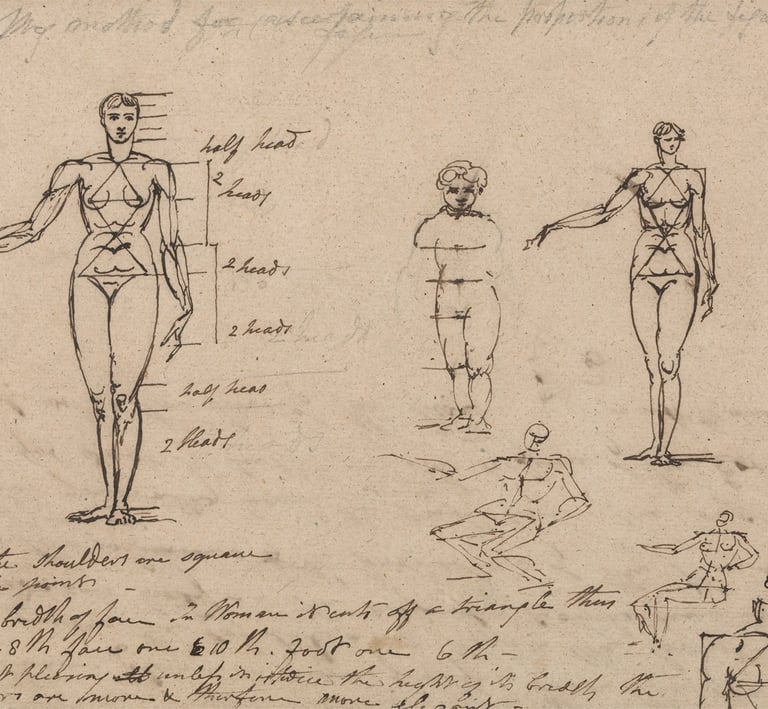 My method for ascertaining the proportions of the
half head
2 heads
2 heads
2 heads
half head
2 Heads
shoulders are square
points
bredth of face in Woman it cuts off a triangle thus
8th face one 10th. foot one 6th -
pleasing unless it is twice the height of its bredth the
are more & therefore more